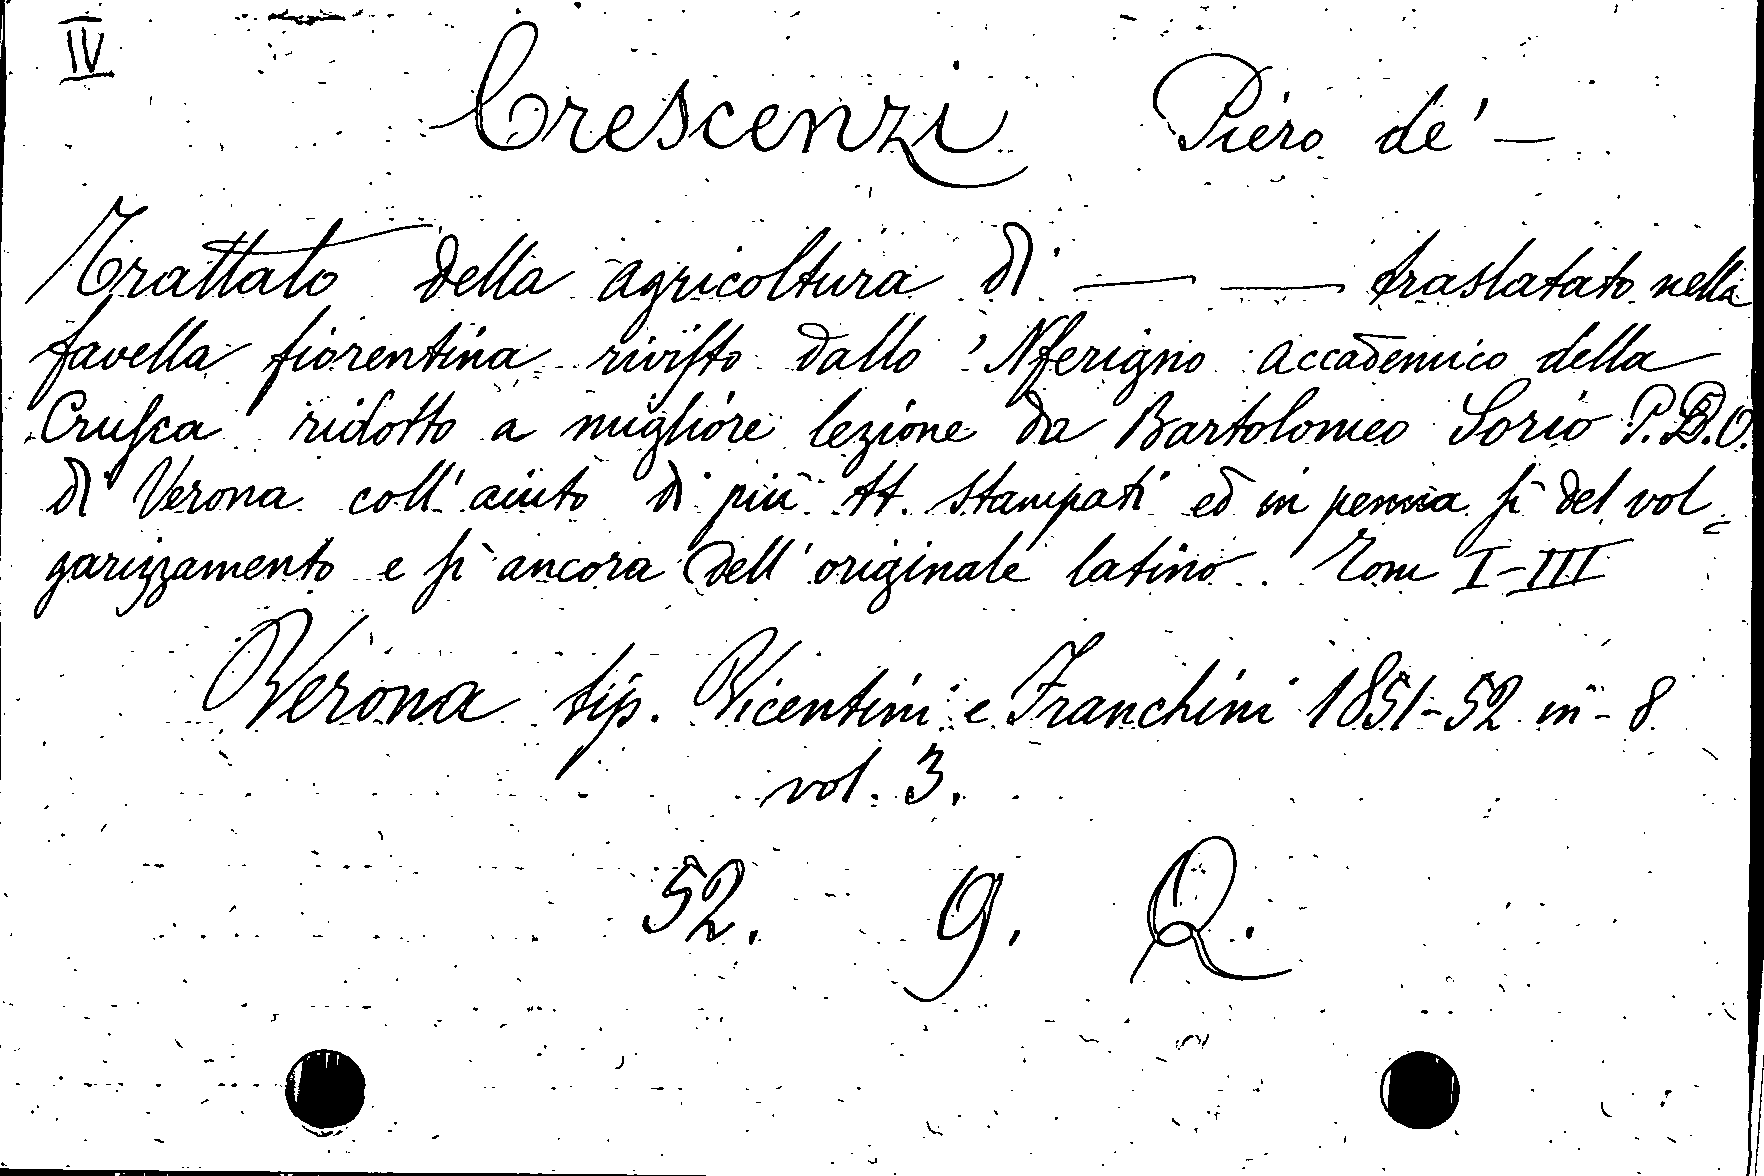 IV
Crescenzi Piero de' —
Trattato della agricoltura di — — traslatato nella
favella fiorentina rivisto dallo 'Nferigno accademico della
Crusca ridotto a migliore lezione da Bartolomeo Sorio P.D.O.
di Verona coll' aiuto di più tt. stampati ed in penna sì del vol=
garizzamento e sì ancora dell' originale latino. Tom I-III
Verona tip. Vicentini e Franchini 1851-52 in-8
vol. 3.
52. 9. Q.